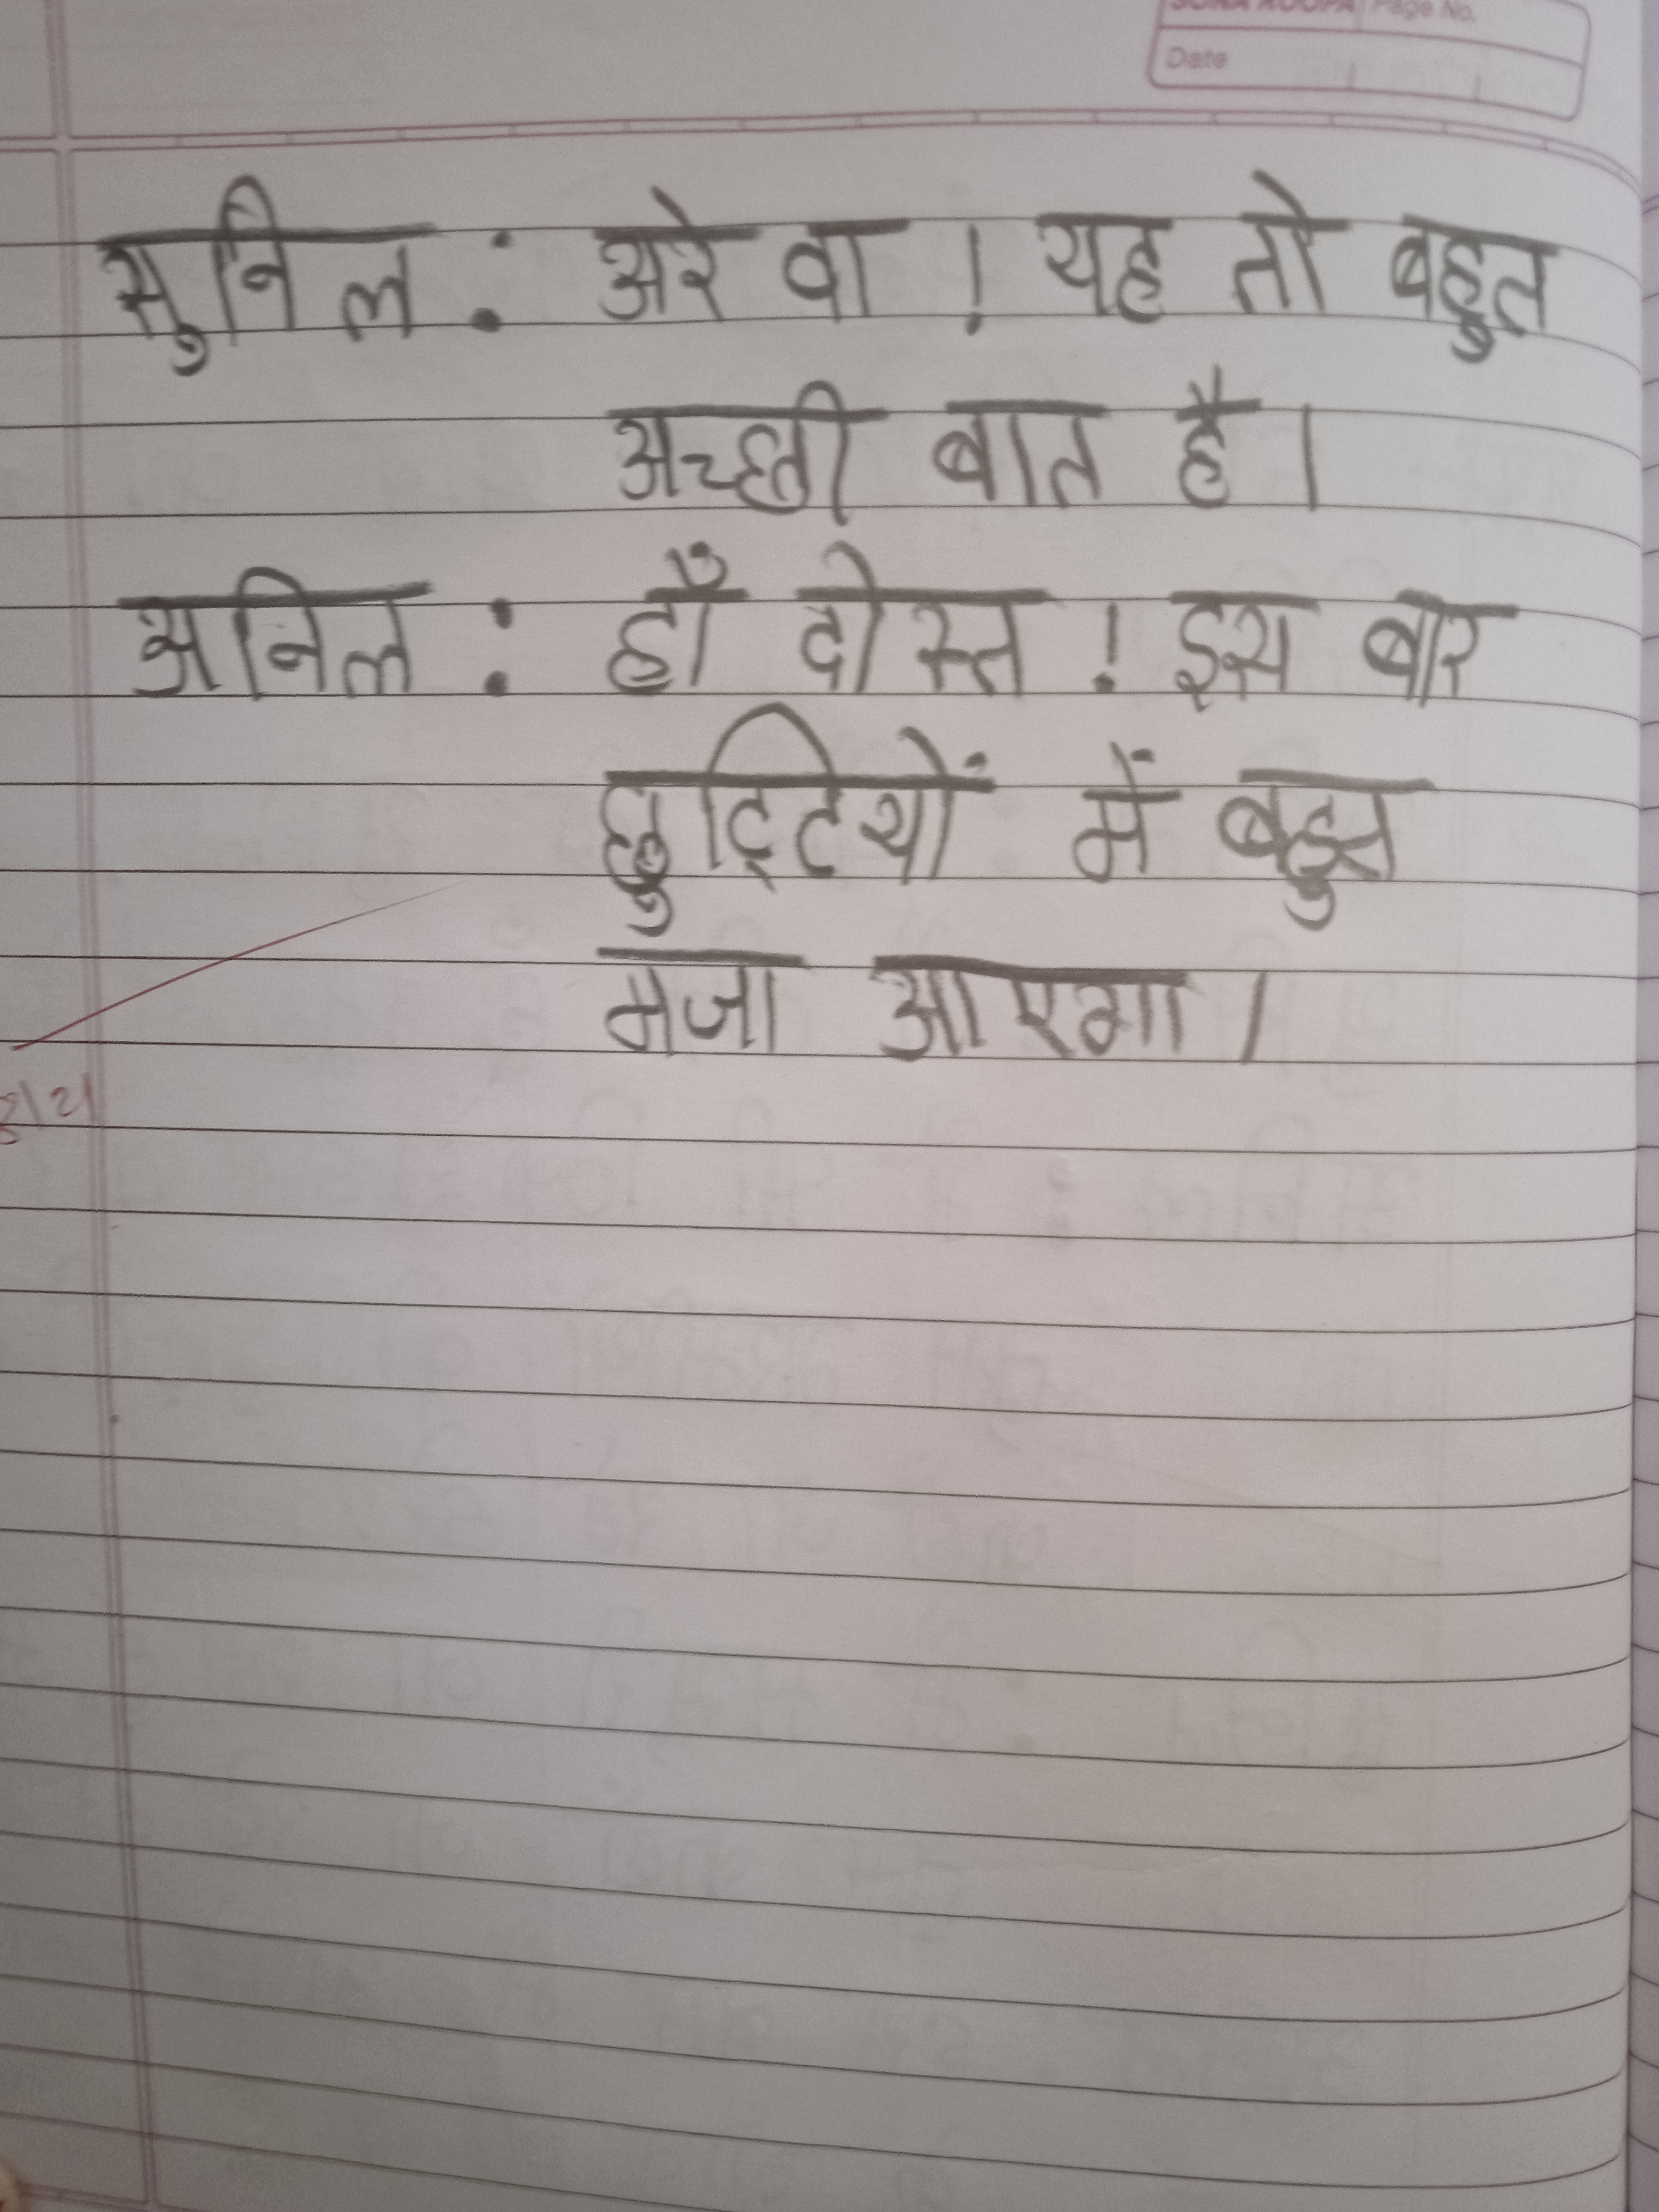 Page No.
Date
सुनिल : अरे वा ! यह तो बहुत
अच्छी बात है।
अनिल : हाँ दोस्त ! इस बार
छुट्टियों में बहुत
मजा आएगा।